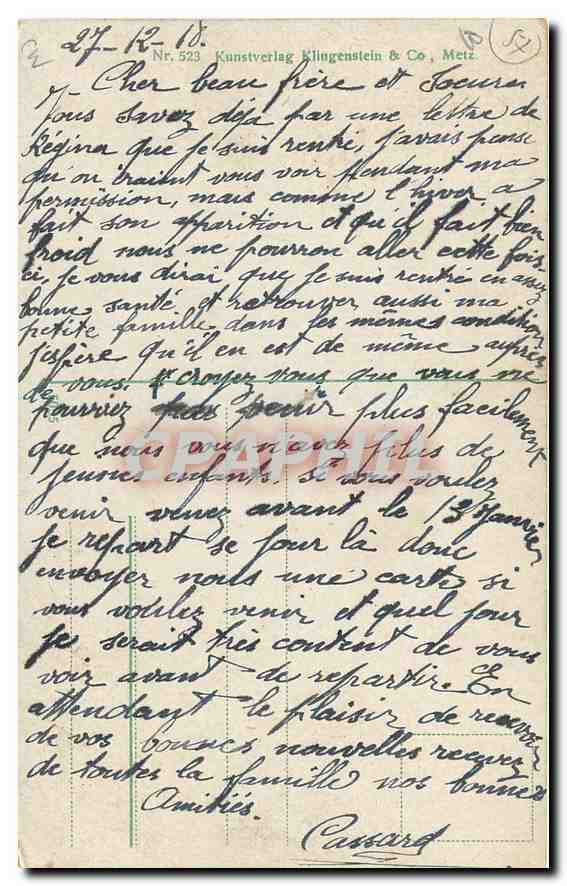 27-12-18.
52
Nr. 523 Kunstverlag Klingenstein & Co, Metz.
Cher beau frère et Soeur
Vous savez déjà par une lettre de
Régina que je suis rentré, j'avais pensé
qu'on iraient vous voir pendant ma
permission, mais comme l'hiver a
fait son apparition et qu'il fait bien
froid nous ne pourron aller cette fois-
ci, je vous dirai que je suis rentré en assez
bonne santé et retrouver aussi ma
petite famille dans les mêmes condition
j'espère qu'il en est de même auprès
de vous. croyez vous que vous ne
pourriez pas venir plus facilement
que nous vous n'avez plus de
jeunes enfants. si vous voulez
venir venez avant le 13 Janvier
je repart se jour là donc
envoyer nous une carte si
vous voulez venir et quel jour
je serait très content de vous
voir avant de repartir. En
attendant le plaisir de recevoir
de vos bonnes nouvelles recevez
de toutes la famille nos bonnes
Amitiés.
Cassard
CPAPHIL